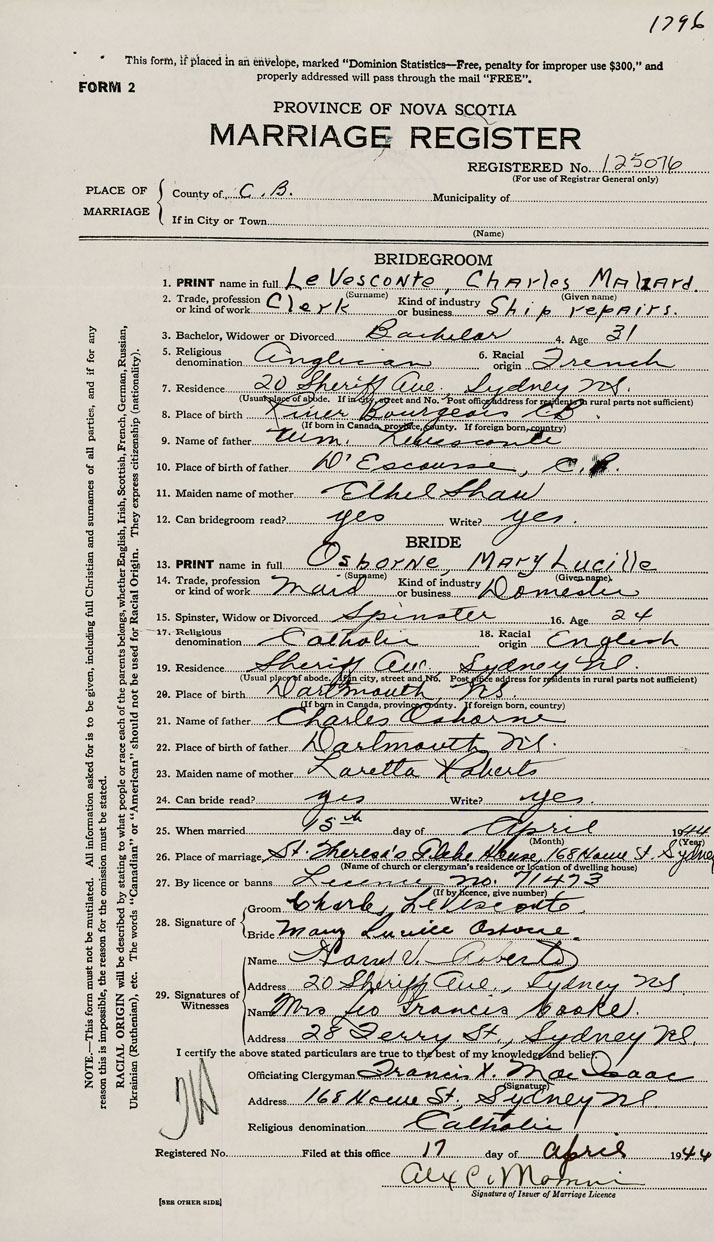 1796
This form, if placed in an envelope, marked "Dominion Statistics—Free, penalty for improper use $300," and
properly addressed will pass through the mail "FREE".
FORM 2
PROVINCE OF NOVA SCOTIA
MARRIAGE REGISTER
REGISTERED No. 125076
(For use of Registrar General only)
PLACE OF MARRIAGE
County of C. B. Municipality of
If in City or Town
(Name)
BRIDEGROOM
1. PRINT name in full LeVesconte, Charles
(Surname) (Given name)
2. Trade, profession or kind of work Clerk Kind of industry or business Ship repairs.
3. Bachelor, Widower or Divorced Bachelor 4. Age 31
5. Religious denomination Anglican 6. Racial origin French
7. Residence 20 Sheriff Ave. Sydney N.S.
(Usual place of abode. If in city, street and No. Post office address for residents in rural parts not sufficient)
8. Place of birth River Bourgeois C.B.
(If born in Canada, province, county. If foreign born, country)
9. Name of father Wm. Levesconte
10. Place of birth of father D'Escousse, C.B.
11. Maiden name of mother Ethel Shaw
12. Can bridegroom read? yes Write? yes.
BRIDE
13. PRINT name in full Osborne, Mary Lucille
(Surname) (Given name)
14. Trade, profession or kind of work Maid Kind of industry or business Domestic
15. Spinster, Widow or Divorced Spinster 16. Age 24
17. Religious denomination Catholic 18. Racial origin English
19. Residence Sheriff Ave. Sydney N.S.
(Usual place of abode. If in city, street and No. Post office address for residents in rural parts not sufficient)
20. Place of birth Dartmouth, N.S.
(If born in Canada, province, county. If foreign born, country)
21. Name of father Charles Osborne
22. Place of birth of father Dartmouth N.S.
23. Maiden name of mother Laretta Roberts
24. Can bride read? yes Write? yes.
25. When married 15th day of April 1944
(Month) (Year)
26. Place of marriage St. Theresa's Glebe House, 168 Howe St. Sydney
(Name of church or clergyman's residence or location of dwelling house)
27. By licence or banns Licence no. 71473
(If by licence, give number)
28. Signature of
Groom Charles LeVesconte.
Bride Mary Osborne.
29. Signatures of Witnesses
Name Roberts
Address 20 Sheriff Ave., Sydney N.S.
Name Mrs Leo Francis Cooke.
Address 28 Ferry St., Sydney N.S.
I certify the above stated particulars are true to the best of my knowledge and belief.
Officiating Clergyman Francis X. MacIsaac
(Signature)
Address 168 Howe St., Sydney N.S.
Religious denomination Catholic
Registered No. Filed at this office 17 day of April 1944
Alex C.
Signature of Issuer of Marriage Licence
[SEE OTHER SIDE]
NOTE.—This form must not be mutilated. All information asked for is to be given, including full Christian and surnames of all parties, and if for any
reason this is impossible, the reason for the omission must be stated.
RACIAL ORIGIN will be described by stating to what people or race each of the parents belongs, whether English, Irish, Scottish, French, German, Russian,
Ukrainian (Ruthenian), etc. The words "Canadian" or "American" should not be used for Racial Origin. They express citizenship (nationality).